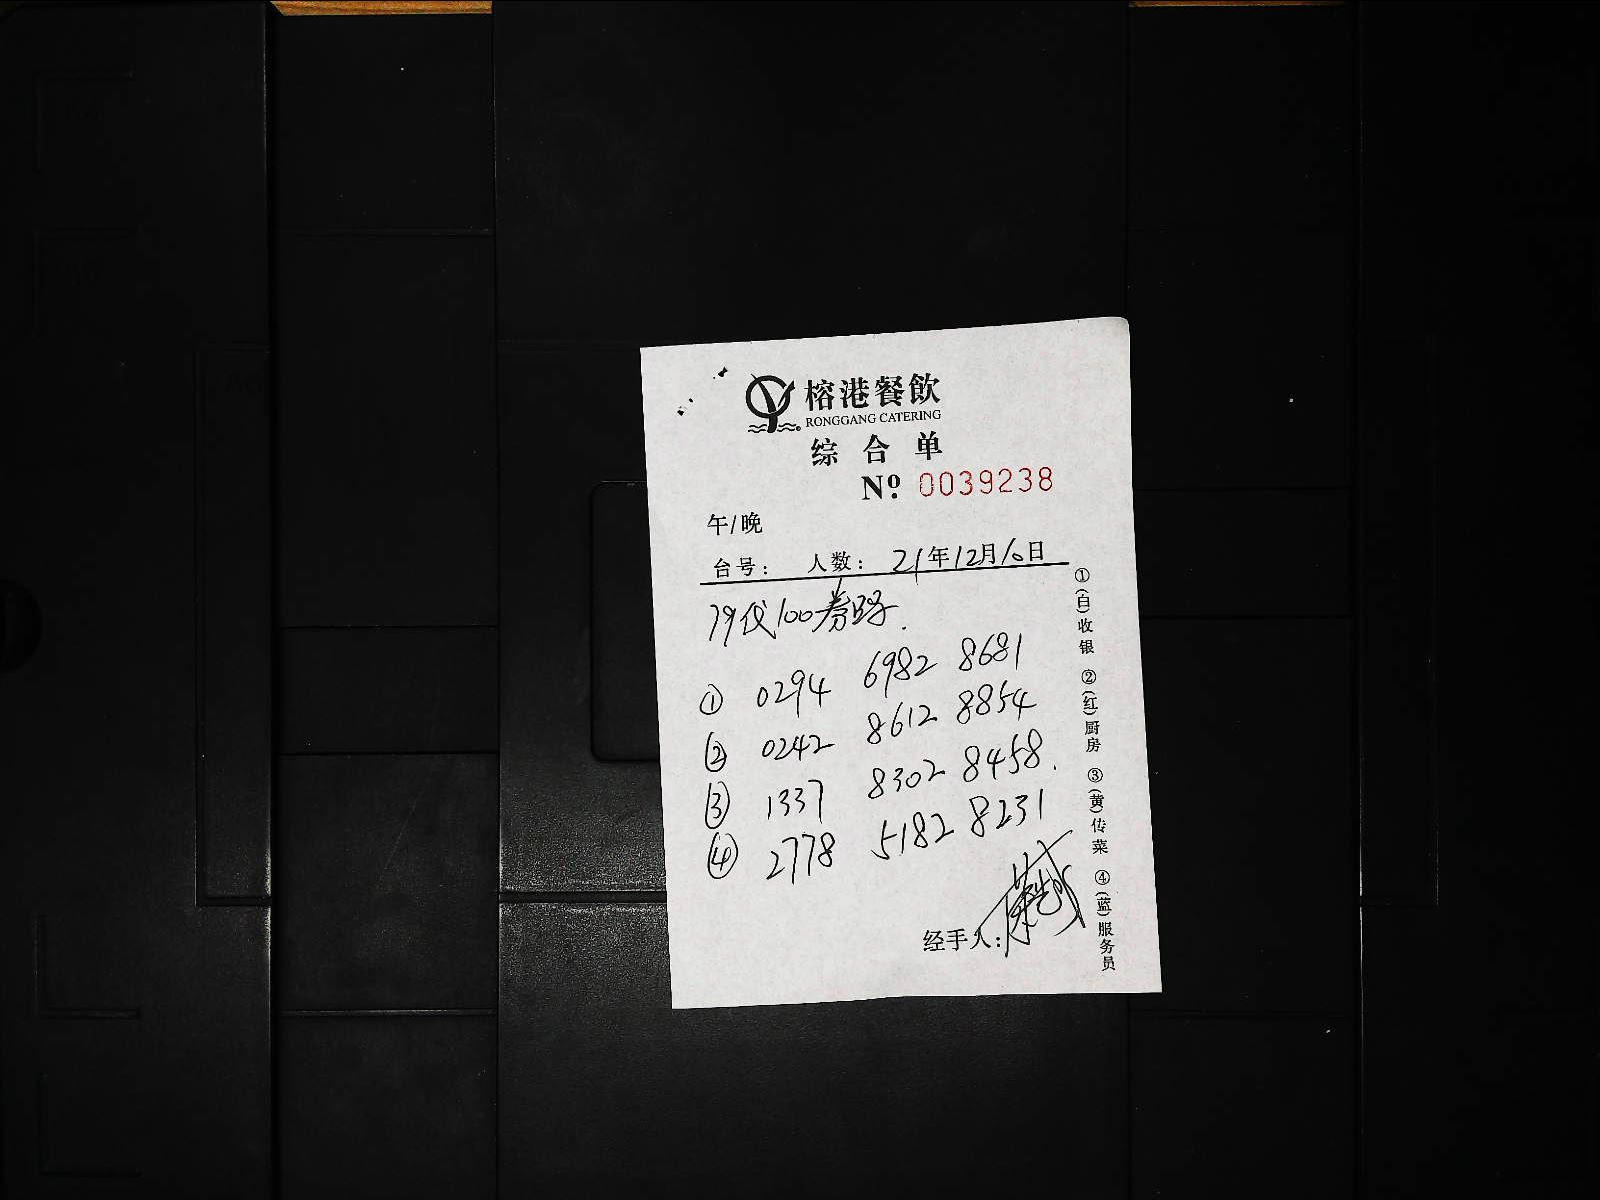 榕港餐飲
RONGGANG CATERING
综合单
Nº: 0039238
午/晚
台号: 人数: 21年12月10日
79代100券号码.
① 0294 6982 8681
② 0242 8612 8854
③ 1337 8302 8458.
④ 2778 5182 8231
经手人:
①(白)收银 ②(红)厨房 ③(黄)传菜 ④(蓝)服务员